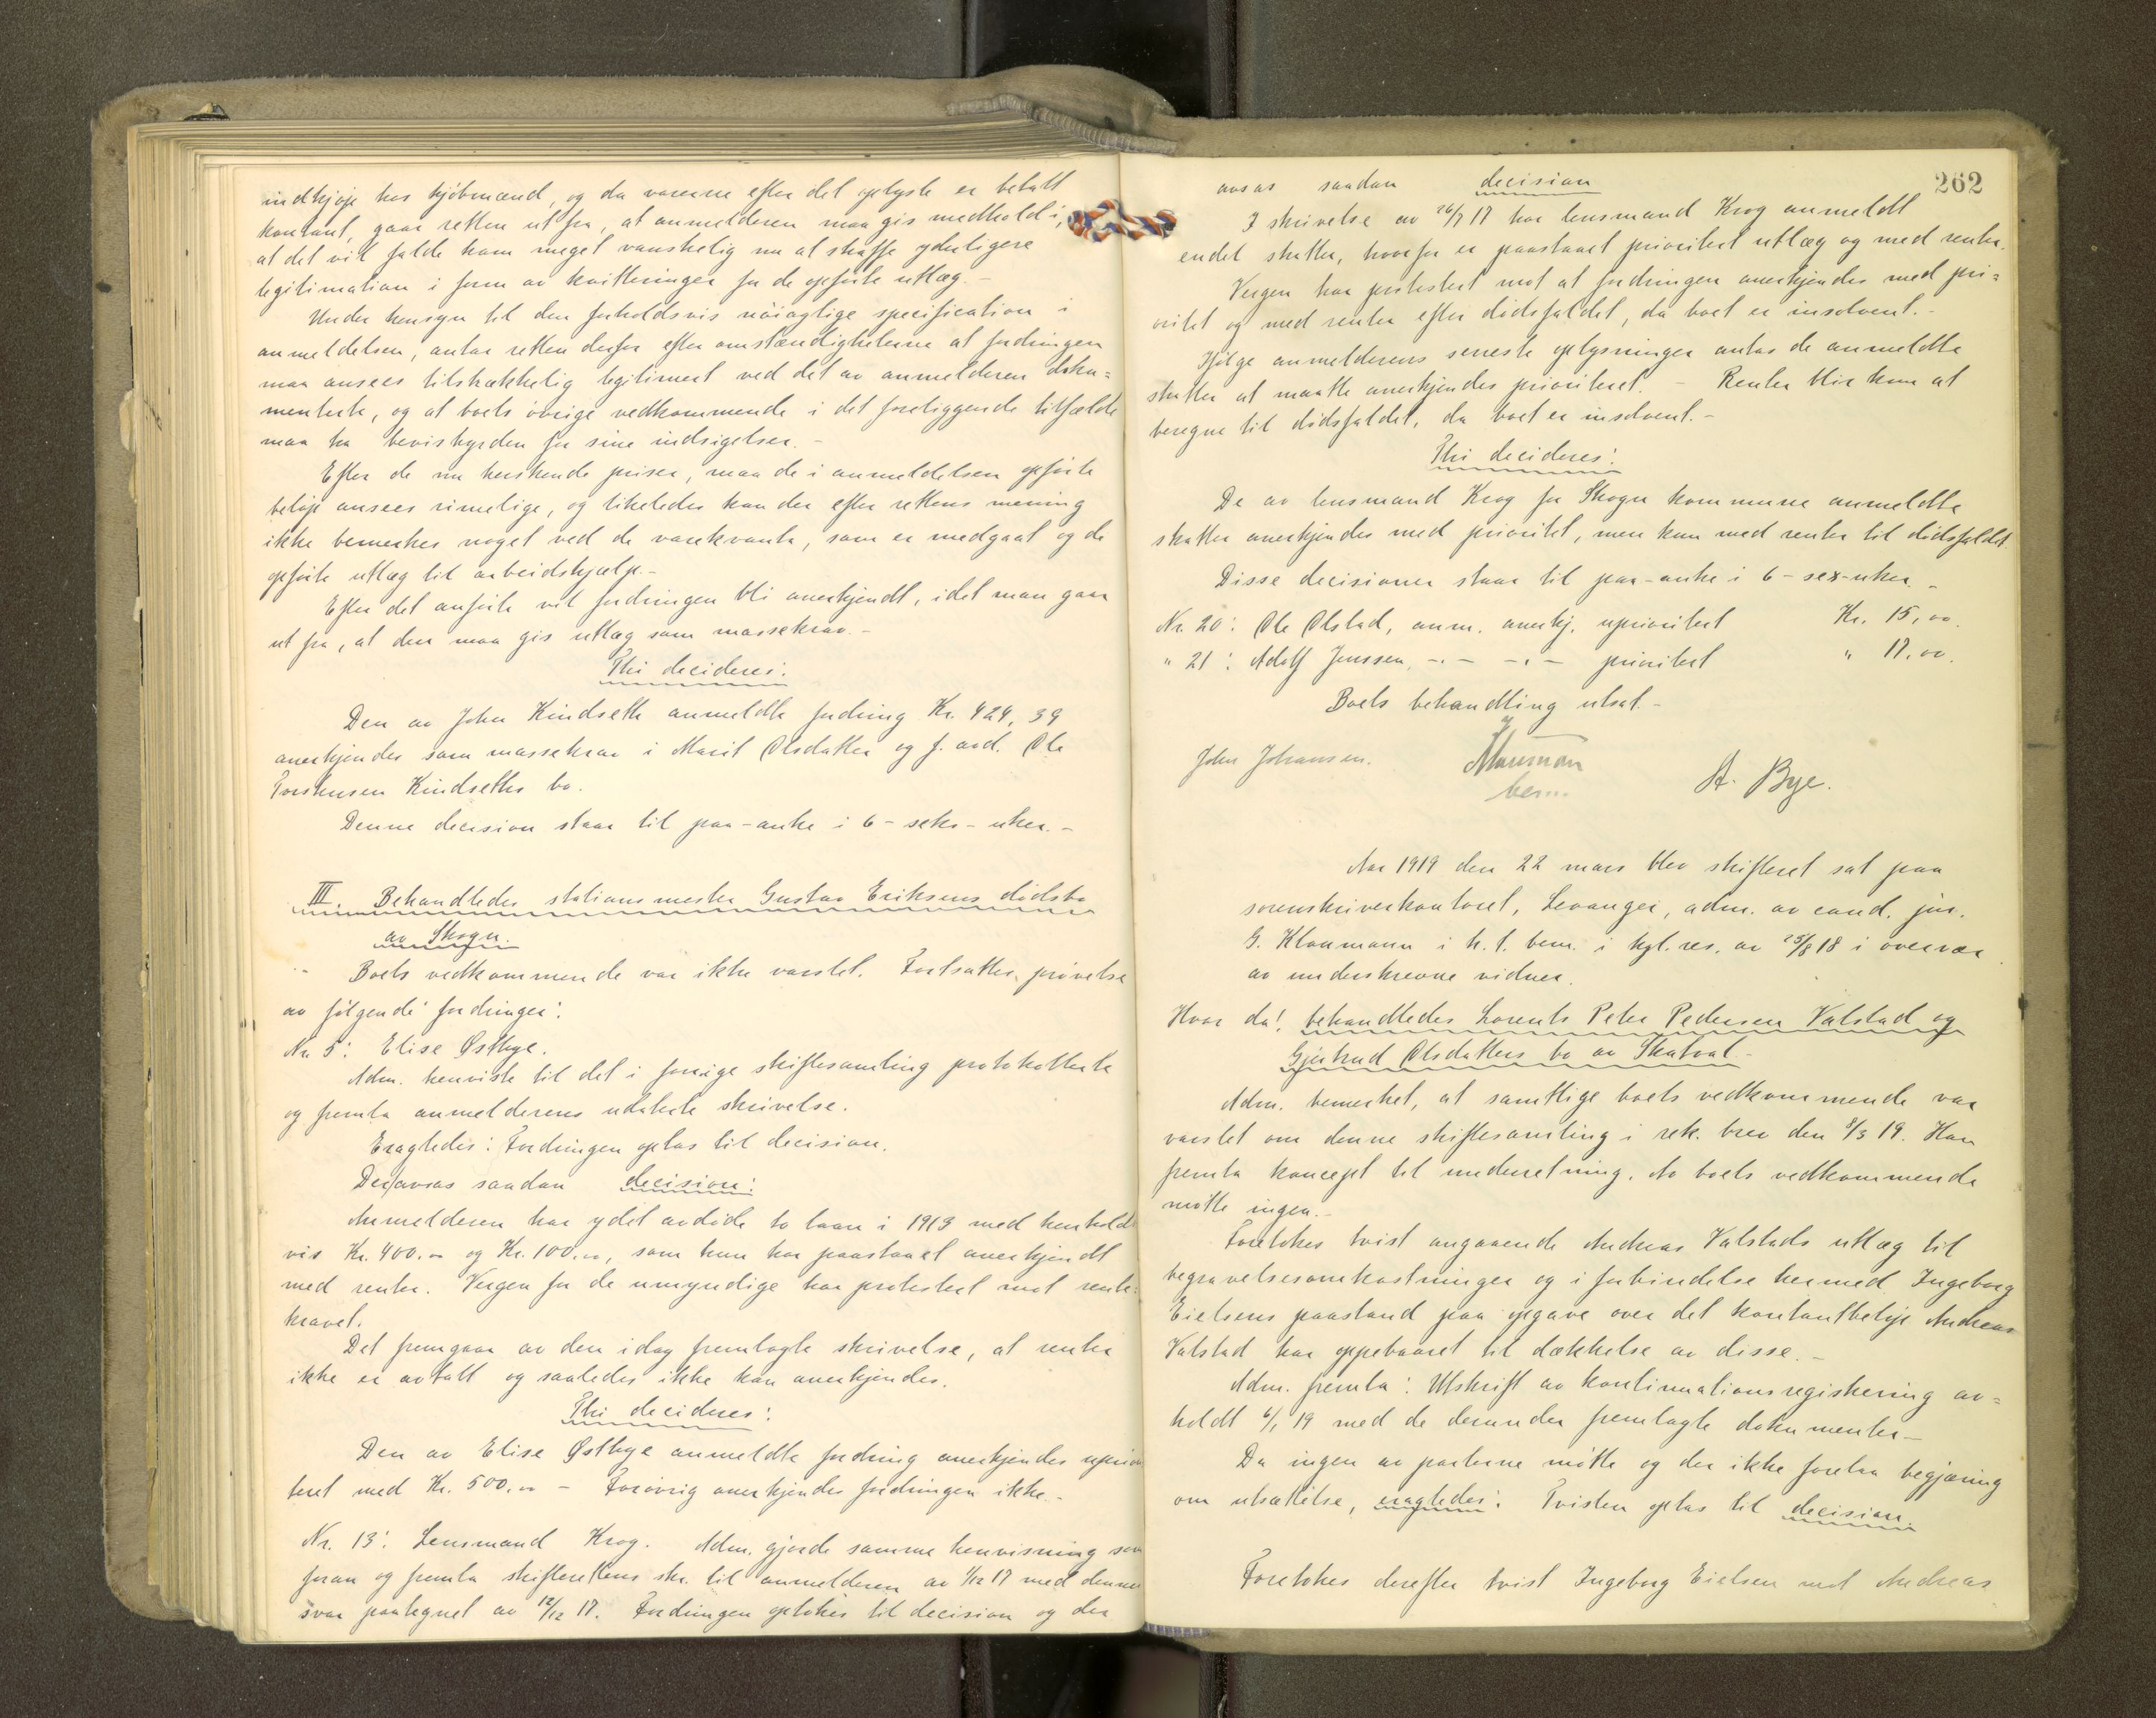 indkjøp hos kjøbmænd, og da varerne efter det oplyste er betalt
kontant, gaar retten ut fra, at anmelderen maa gis medhold i,
at det vil falde ham meget vanskelig nu at skaffe yderligere
legitimation i form av kvitteringer for de opførte utlæg.-
Under hensyn til den forholdsvis nøiagtige specification i
anmeldelsen, antar retten derfor efter omstændigheterne at fordringen
maa ansees tilstrækkelig legitimert ved det av anmelderen doku=
menterte, og at boets øvrige vedkommende i det foreliggende tilfælde
maa ha bevisbyrden for sine indsigelser.-
Efter de nu herskende priser, maa de i anmeldelsen opførte
beløp ansees rimelige, og likeledes kan der efter rettens mening
ikke bemerkes noget ved de varekvanta, som er medgaat og de
opførte utlæg til arbeidshjælp.-
Efter det anførte vil fordringen bli anerkjendt, idet man gaar
ut fra, at den maa gis utlæg som massekrav.-
Thi decideres:
Den av John Kindseth anmeldte fordring Kr. 424,39
anerkjendes som massekrav i Marit Olsdatter og f. avd. Ole
Torstensen Kindseths bo.
Denne decision staar til paa-anke i 6-seks-uker.-
III. Behandledes stationsmester Gustav Eriksens dødsbo
av Skogn.
Boets vedkommende var ikke varslet. Fortsattes prøvelse
av følgende fordringer:
Nr 5: Elise Østbye.
Adm. henviste til det i forrige skiftesamling protokollerte
og fremla anmelderens udaterte skrivelse.
Eragtedes: Fordringen optas til decision.
Der avsas saadan decision:
Anmelderen har ydet avdøde to laan i 1913 med henholds
vis Kr. 400.00 og Kr. 100.00, som hun har paastaaet anerkjendt
med renter. Vergen for de umyndige har protestert mot rente=
kravet.
Det fremgaar av den idag fremlagte skrivelse, at renter
ikke er avtalt og saaledes ikke kan anerkjendes.
Thi decideres:
Den av Elise Østbye anmeldte fordring anerkjendes uprio
tert med Kr. 500.00 - Forøvrig anerkjendes fordringen ikke.-
Nr. 13: Lensmand Krog. Adm. gjorde samme henvisning som
foran og fremla skifterettens skr. til anmelderen av 1/12 17 med dennes
svar paategnet av 12/12 17. Fordringen optokes til decision og der
262
avsas saadan decision
I skrivelse av 26/7 17 har lensmand Krog anmeldt
endel skatter, hvorfor er paastaaet prioritert utlæg og med renter.
Vergen har protestert mot at fordringen anerkjendes med pri=
oritet og med renter efter dødsfaldet, da boet er insolvent.-
Ifølge anmelderens seneste oplysninger antas de anmeldte
skatter at maatte anerkjendes prioritert. - Renter blir kun at
beregne til dødsfaldet, da boet er insolvent.-
Thi decideres:
De av lensmand Krog for Skogn kommune anmeldte
skatter anerkjendes med prioritet, men kun med renter til dødsfaldet
Disse decisioner staar til paa-anke i 6-sex-uker.-
Nr. 20: Ole Olstad, anm. anerkj. uprioritert Kr. 15,00.
" 21: Adolf Jenssen, -.- -.- prioritert " 17.00.
Boets behandling utsat.-
John Johansen.
bem.
St. Bye.
Aar 1919 den 22 mars blev skifteret sat paa
sorenskriverkontoret, Levanger, adm. av cand. jur.
G. Klaumann i h. t. bem. i kgl. res. av 25/8 18 i overvær
av underskrevne vidner.
Hvor da: behandledes Lorents Peter Pedersen Valstad og
Gjertrud Olsdatters bo av Skatval.-
Adm. bemerket, at samtlige boets vedkommende var
varslet om denne skiftesamling i rek. brev den 8/3 19. Han
fremla koncept til underretning. Av boets vedkommende
møtte ingen.-
Foretokes tvist angaaende Andreas Valstads utlæg til
begravelsesomkostninger og i forbindelse hermed Ingeborg
Eielsens paastand paa opgave over det kontantbeløp Andreas
Valstad har oppebaaret til dækkelse av disse.-
Adm. fremla: Utskrift av kontinuationsregistrering av=
holdt 6/1 19 med de derunder fremlagte dokumenter.-
Da ingen av parterne møtte og der ikke forelaa begjæring
om utsættelse, eragtedes: Tvisten optas til decision.
Foretokes derefter tvist Ingeborg Eielsen mot Andreas